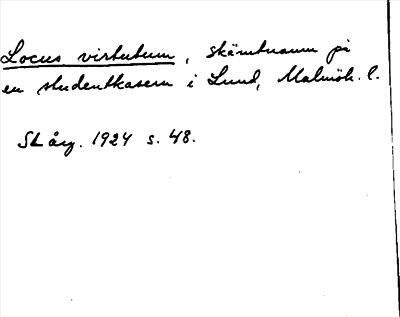 Locus virtutum, skämtnamn på
en studentkasern i Lund, Malmöh. l.
SL årg. 1924 s. 48.